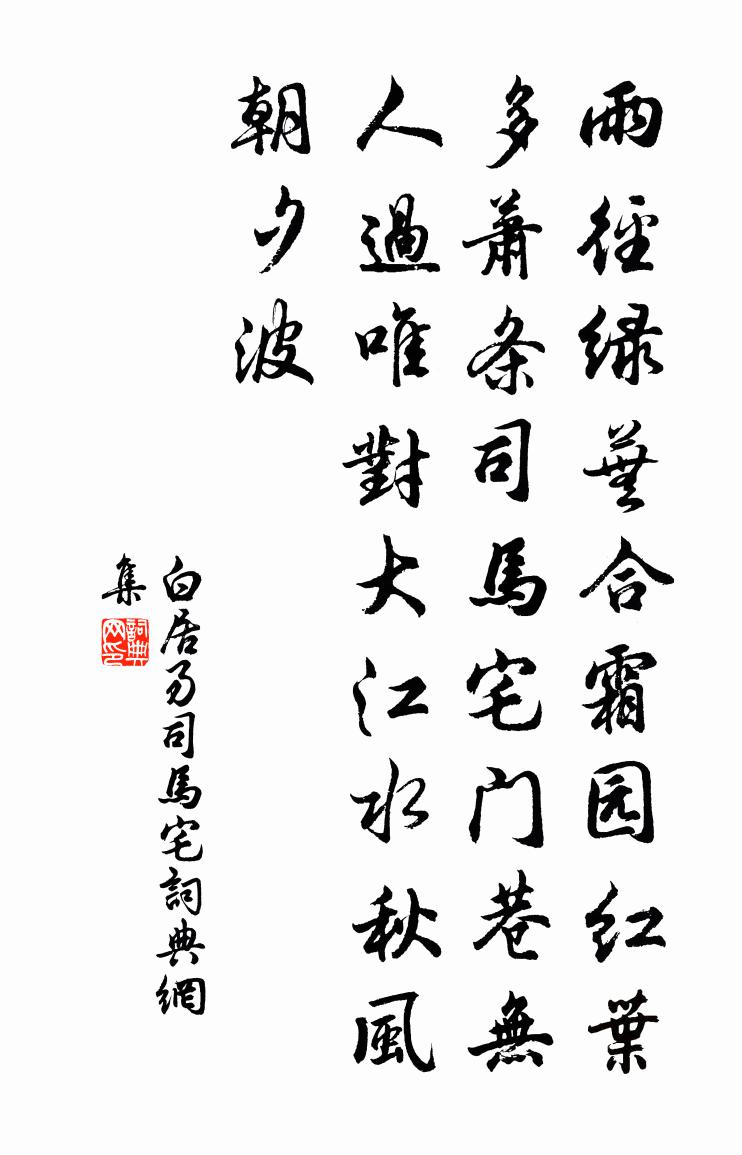 雨径绿蕪合霜园红葉
多蕭条司馬宅門巷無
人過唯對大江水秋風
朝夕波
白居易司馬宅詞典網
集
詞典网印